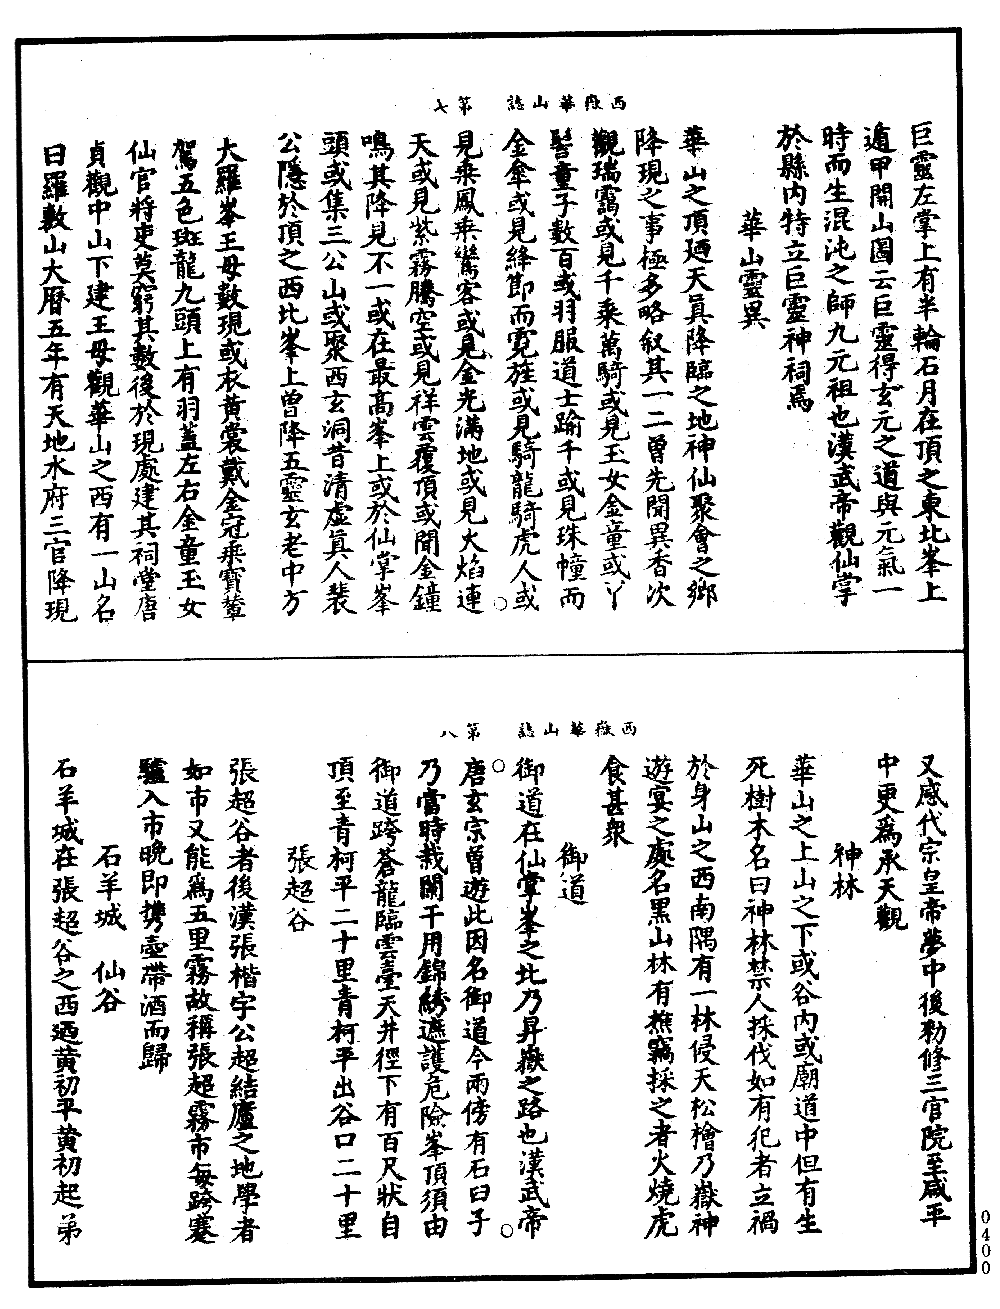 西嶽華山誌　第七
巨靈左掌上有半輪石月在頂之東北峯上
遁甲開山圖云巨靈得玄元之道與元氣一
時而生混沌之師九元祖也漢武帝觀仙掌
於縣內特立巨靈神祠焉
華山靈異
華山之頂廼天眞降臨之地神仙聚會之鄉
降現之事極多略叙其一二曾先聞異香次
觀瑞靄或見千乘萬騎或見玉女金童或丫
髻童子數百或羽服道士踰千或見珠幢而
金傘或見絳節而霓旌或見騎龍騎虎人或
見乘鳳乘鸞客或見金光滿地或見火焰連
天或見紫霧騰空或見祥雲覆頂或聞金鐘
鳴其降見不一或在最高峯上或於仙掌峯
頭或集三公山或聚西玄洞昔清虛眞人裴
公隱於頂之西北峯上曾降五靈玄老中方
大羅峯王母數現或衣黃裳戴金冠乘寶輦
駕五色斑龍九頭上有羽蓋左右金童玉女
仙官將吏莫窮其數後於現處建其祠堂唐
貞觀中山下建王母觀華山之西有一山名
曰羅敷山大曆五年有天地水府三官降現
西嶽華山誌　第八
又感代宗皇帝夢中後勑修三官院至咸平
中更爲承天觀
神林
華山之上山之下或谷內或廟道中但有生
死樹木名曰神林禁人採伐如有犯者立禍
於身山之西南隅有一林侵天松檜乃嶽神
遊宴之處名黑山林有樵竊採之者火燒虎
食甚衆
御道
御道在仙掌峯之北乃昇嶽之路也漢武帝
唐玄宗曾遊此因名御道今兩傍有石臼子
乃當時栽闌干用錦綉遮護危險峯頂須由
御道跨蒼龍臨雲臺天井徑下有百尺狀自
頂至青柯平二十里青柯平出谷口二十里
張超谷
張超谷者後漢張楷字公超結廬之地學者
如市又能爲五里霧故稱張超霧市每跨蹇
驢入市晚卽携壺帶酒而歸
石羊城　仙谷
石羊城在張超谷之西迺黃初平黃初起弟
0400